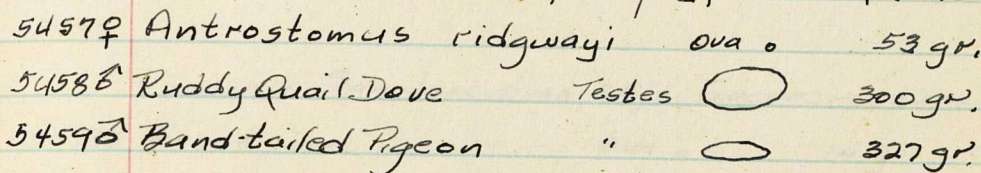 5457♀ Antrostomus ridgwayi ova 53 gr.
5458♂ Ruddy Quail Dove Testes 300 gr.
5459♂ Band-tailed Pigeon " 327 gr.